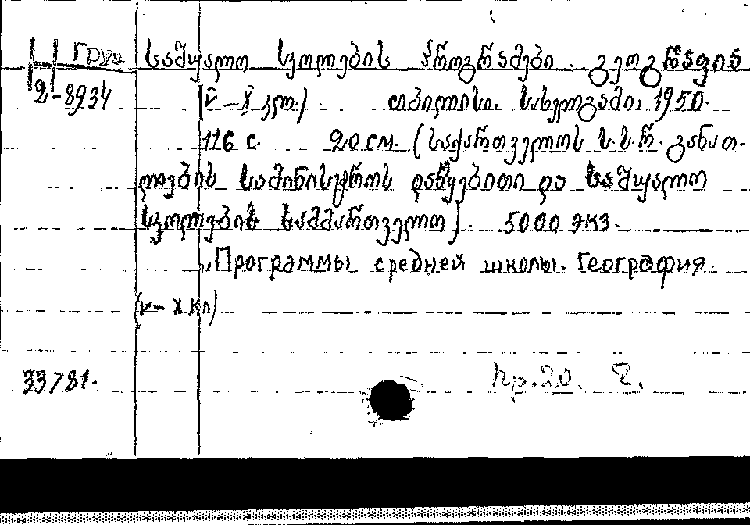 Груз საშუალო სკოლების პროგრამები. გეოგრაფია
2-8934 (V–X კლ.) თბილისი. სახელგამი, 1950.
116 с. 20 см. (საქართველოს ს.ს.რ. განათ-
ლების სამინისტროს დაწყებითი და საშუალო
სკოლების სამმართველო). 5000 экз.
Программы средней школы. География
(V–X кл)
33781.